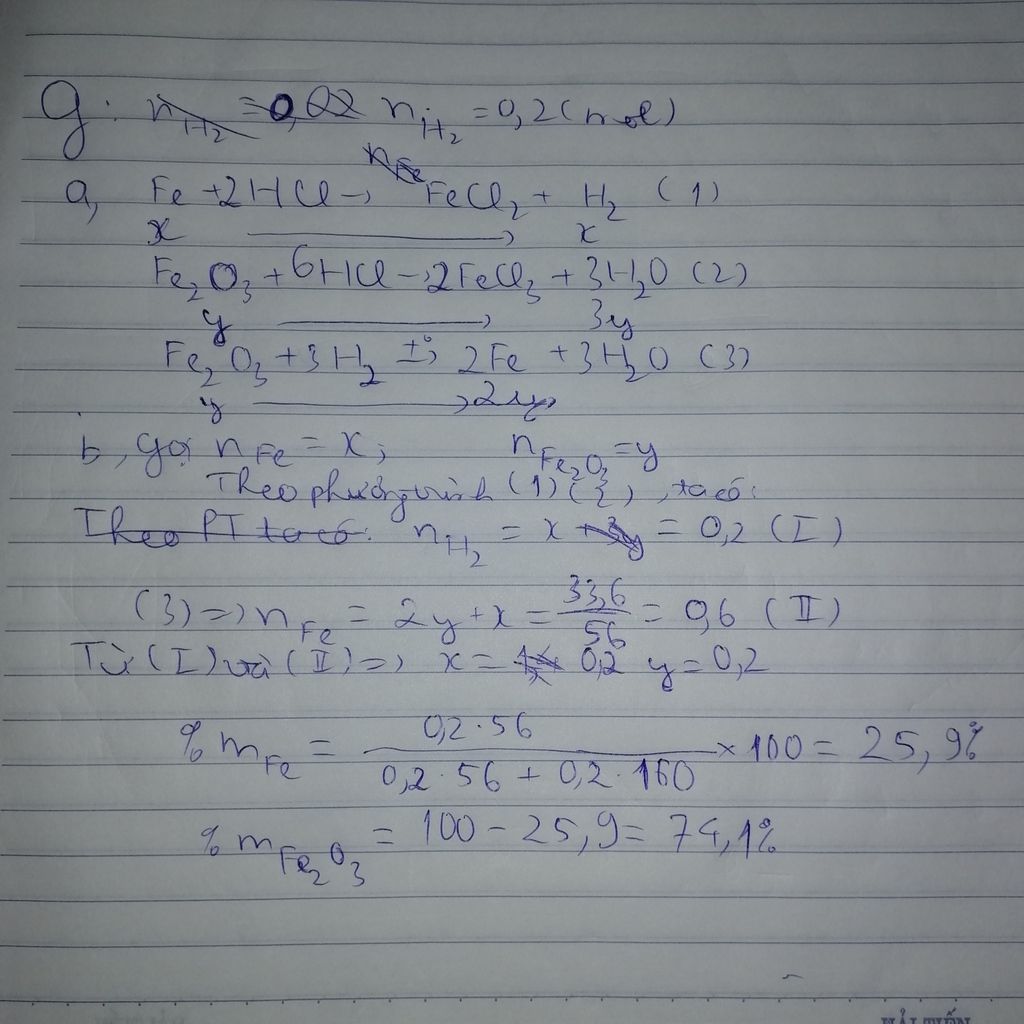 g: n_H₂ = 0,02 n_H₂ = 0,2 (mol)
n_Fe
a, Fe + 2HCl → FeCl₂ + H₂ (1)
x → x
Fe₂O₃ + 6HCl → 2FeCl₃ + 3H₂O (2)
y → 3y
Fe₂O₃ + 3H₂ t°→ 2Fe + 3H₂O (3)
y → 2y
b, gọi n_Fe = x; n_Fe₂O₃ = y
Theo phương trình (1) (2), ta có:
Theo PT ta có: n_H₂ = x + 3y = 0,2 (I)
(3) => n_Fe = 2y + x = 33,6/56 = 0,6 (II)
Từ (I) và (II) => x = 0,2 y = 0,2
% m_Fe = (0,2 · 56)/(0,2 · 56 + 0,2 · 160) × 100 = 25,9%
% m_Fe₂O₃ = 100 - 25,9 = 74,1%
HẢI TIẾN